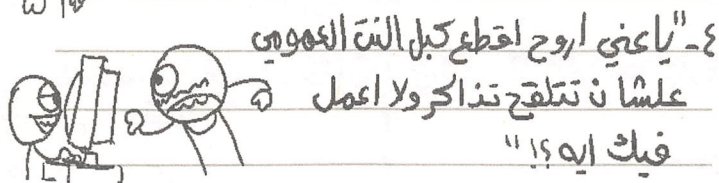 ٤- "يا عني اروح اقطع كبل النت العمومي
علشان تتلقح تذاكر ولا اعمل
فيك ايه ؟! "